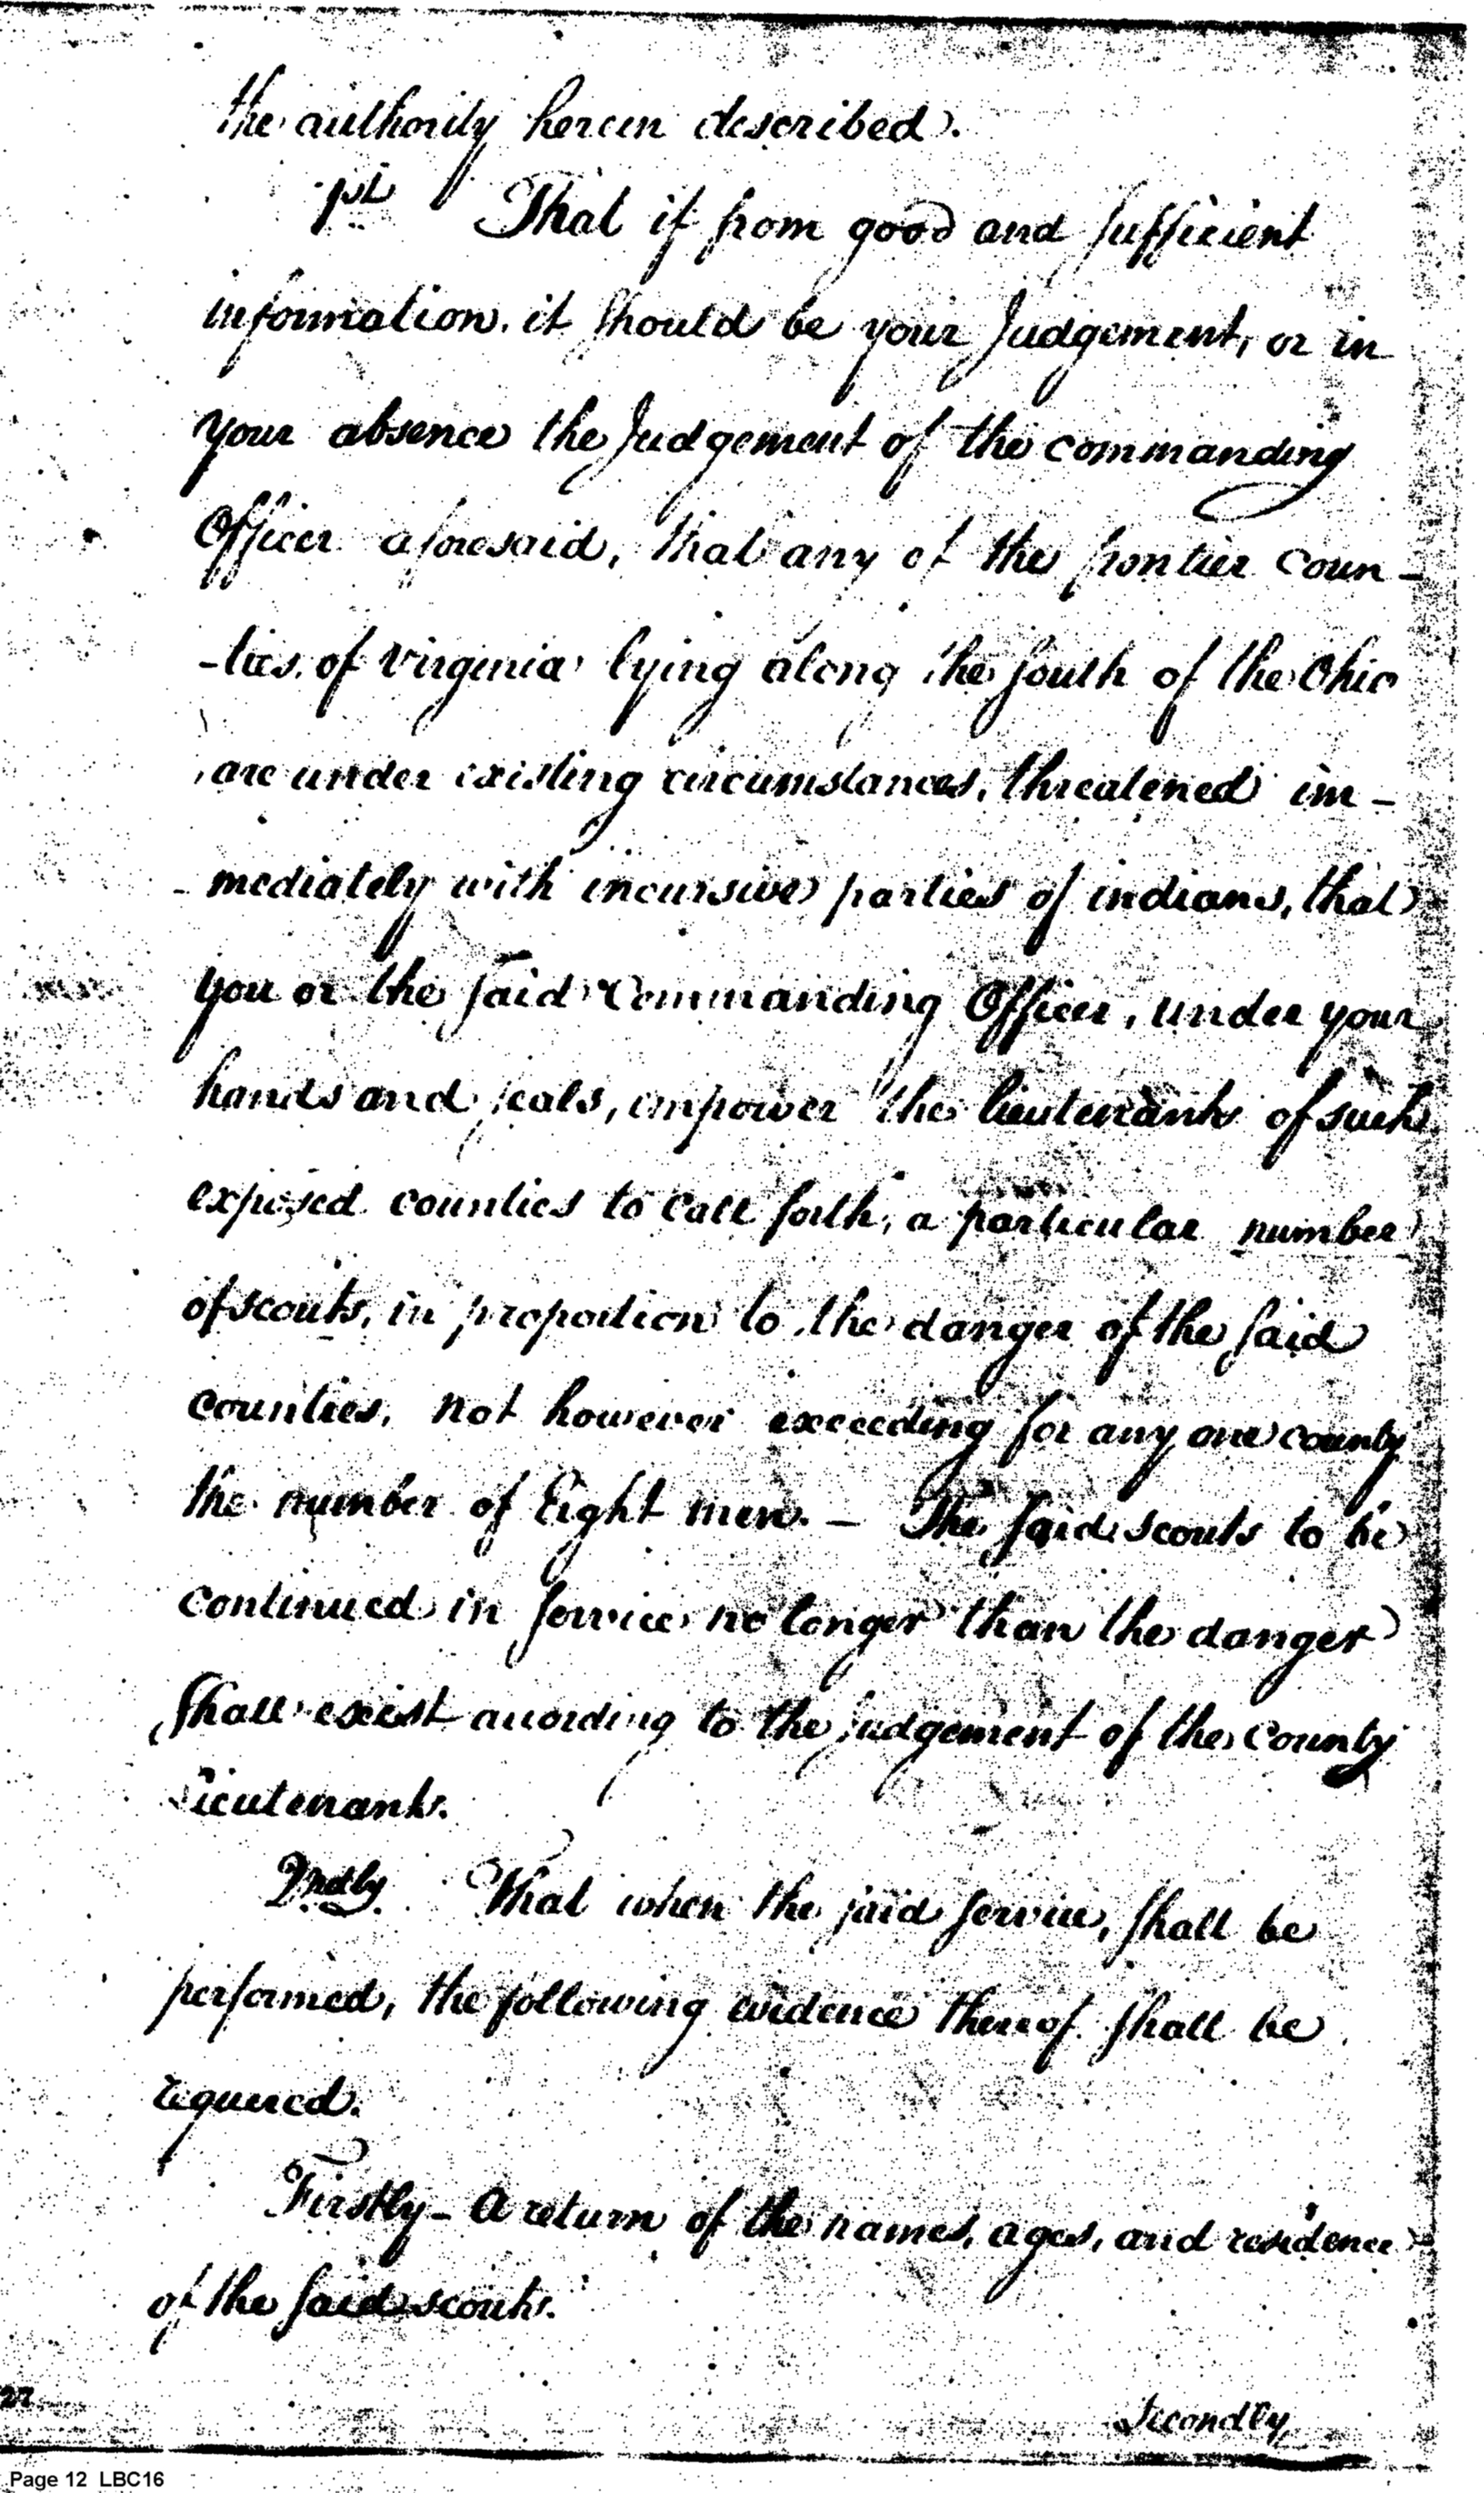 the authority herein described.
1st That if from good and sufficient
information, it should be your Judgement, or in
your absence the Judgement of the commanding
Officer aforesaid, that any of the frontier coun-
-ties, of Virginia lying along the south of the Ohio
are under existing circumstances, threatened im-
-mediately with incursive parties of indians, that
you or the said Commanding Officer, under your
hands and seals, empower the lieutenants of such
exposed counties to call forth, a particular number
of scouts, in proportion to the danger of the said
counties, not however exceeding for any one county
the number of Eight men. - The said scouts to be
continued in service no longer than the danger
shall exist according to the judgement of the County
Lieutenants.
2ndly. That when the said service, shall be
performed, the following evidence thereof shall be
required.
Firstly - A return of the names, ages, and residence
of the said scouts.
27
Secondly,
Page 12 LBC16